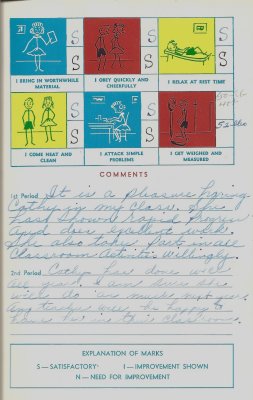 S S
I BRING IN WORTHWHILE MATERIAL
I OBEY QUICKLY AND CHEERFULLY
I RELAX AT REST TIME
S S S
S S S
I COME NEAT AND CLEAN
I ATTACK SIMPLE PROBLEMS
I GET WEIGHED AND MEASURED
COMMENTS
1st Period It is a pleasure
Cathy in my Class. She
has shown rapid
and does work.
She also takes Part in all
Classroom willingly.
2nd Period Cathy has done well
all year. I am sure she
will do as much next year
Any teacher will be happy to
have in classroom.
EXPLANATION OF MARKS
S—SATISFACTORY I—IMPROVEMENT SHOWN
N—NEED FOR IMPROVEMENT